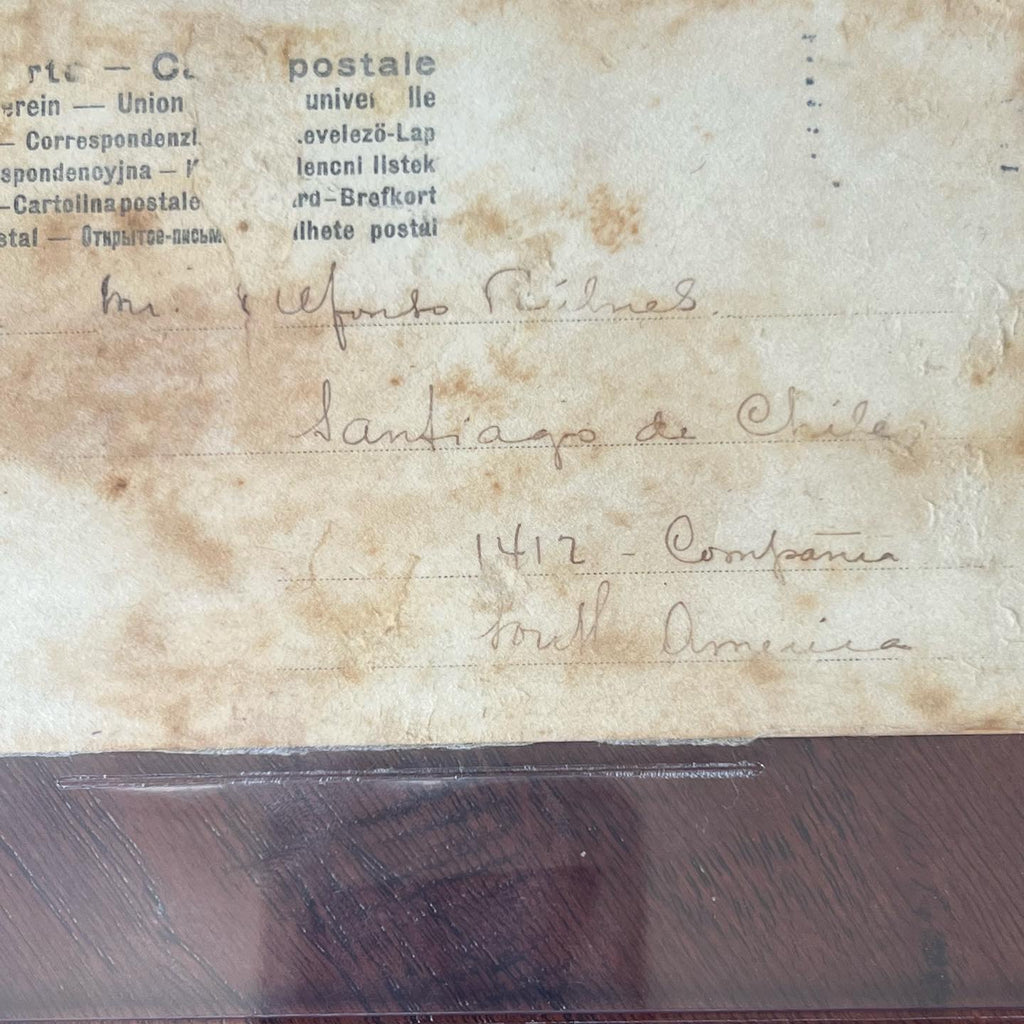 — postale
erein — Union univer lle
— Correspondenz -Lap
spondencyjna — lencni listek
–Cartolina postale rd–Brefkort
stal — Открытое-письм lhete postal
Mr. Alfonso
Santiago de Chile
1412 - Compañia
South America